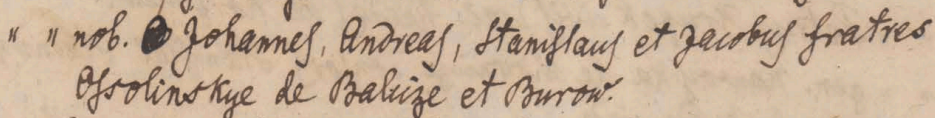 " " nob. Johannes, Andreas, Stanislaus et Jacobus fratres
Ossolinskye de Balicze et Burow.